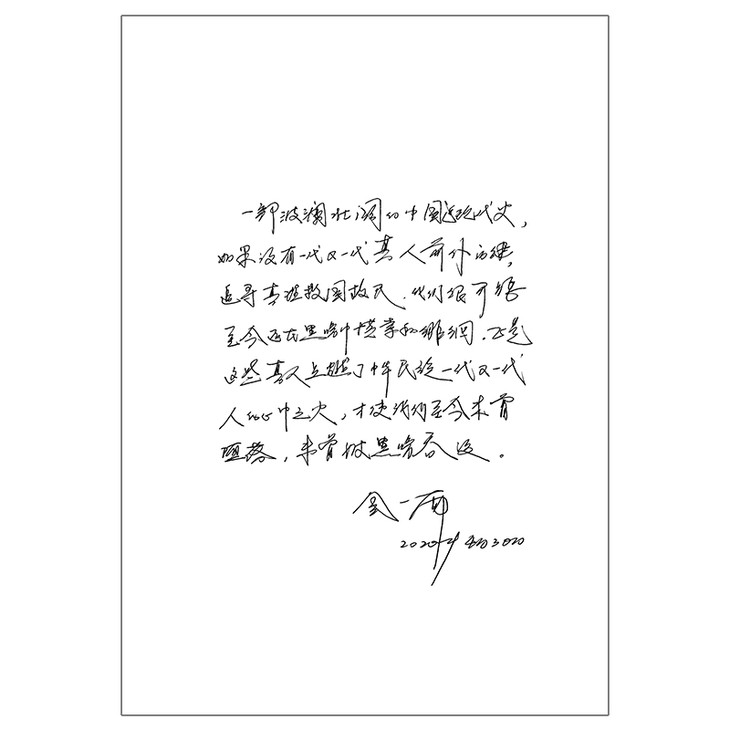 一部波澜壮阔的中国近现代史,
如果没有一代又一代真人前仆后继,
追寻真理救国救民,我们很可能
至今还在黑暗中摸索和徘徊。正是
这些真人点燃了中华民族一代又一代
人的心中之火,才使我们至今未曾
堕落,未曾被黑暗吞没。
金一南
2020年4月30日